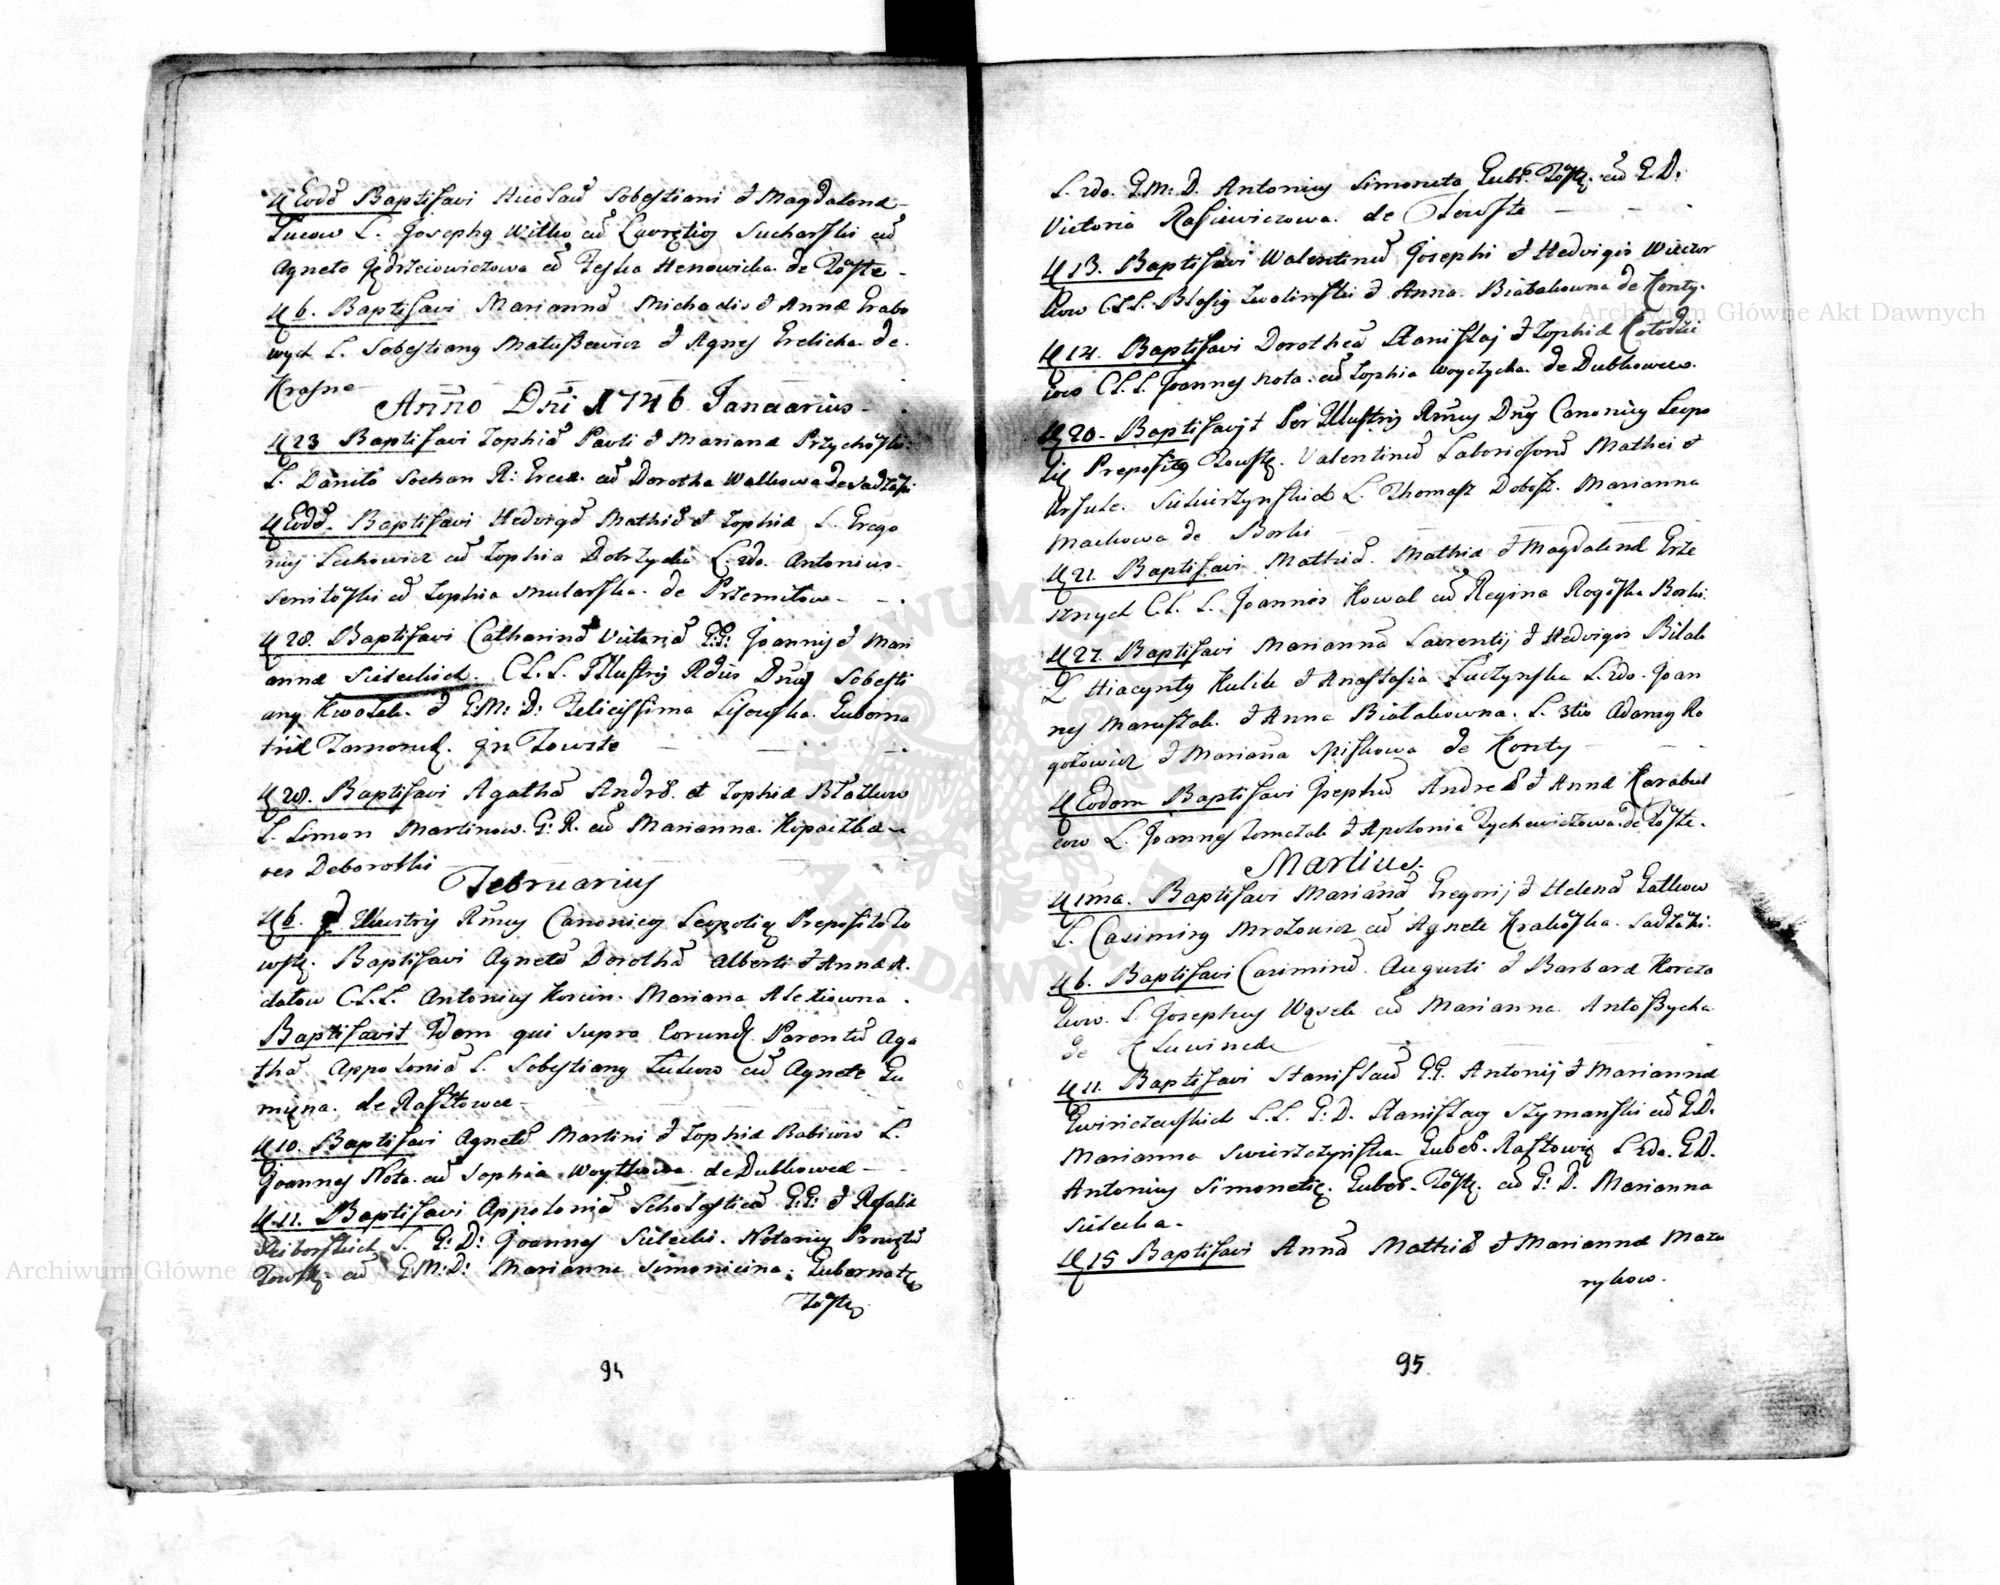 Eodē Baptisavi Nicolaū Sobestiani et Magdalenæ
Lucow L. Josephg Witko cū Lavrętio Sucharski cū
Agneta Jędrzeiowiczowa cū Teska Henowicka de Tőste
6. Baptisavi Mariannā Michaelis et Annæ Grabo
wych L. Sobestiang Matußewicz et Agnes Grelicha de
Krasne
Anno Dni 1746 Januarius
23 Baptisavi Zophiā Pavli et Marianæ Przychőski
L. Daniło Sochan R: Greca. cū Dorotha Walkowa de Sadzaki
Eodē. Baptisavi Hedvigē Mathiæ et Zophiæ L. Grego
rius Lechowicz cū Zophia Dobrzycka L. 2do. Antonius
Senitőski cū Zophia Mularska de Przemiłow
28. Baptisavi Catharinā Victoriā G:G: Joannis et Mari
annæ Sieleckich. C.L.L. Illustris Rdus Dnus Sobesti
ang Kwołek et G:M: D: Felicissima Lisowska Guberna
trix Tarnorud. in Towste
28. Baptisavi Agathā Andreæ et Zophiæ Białkow
L. Simon Martinow G: R. cū Marianna Kopaczka
res Deborothi
Februarius
6. Illustris Rmus Canonicus Leopolien Prepositg To
wste. Baptisavi Agnetē Dorothē Alberti et Annæ A.
datow C.L.L. Antonius Korcin. Mariana Alexiowna
Baptisavit Idem qui supra Eorund Parentū Aga
thā Appoloniā L. Sobestiang Lukow cū Agnete Gu
mięna. de Rasztowce
10. Baptisavi Agnetē Martini et Zophiæ Babiow L.
Joannes Nota cū Sophia Woytkowa de Dubkowce
11. Baptisavi Appoloniā Scholasticā G:G: et Rosaliæ
Sciborskich L. G: D: Joannes Sielecki. Notarius Proventū
Towste cū G:M:D: Marianna Simonicina: Gubernat
Tőste
94
L. 2do. G.M: D. Antonius Simoneta Gube. Tőste. cū G.D:
Victoria Rasiewiczowa de Towste
13. Baptisavi Walentinū Josephi et Hedvigis Wieczor
kow C.L.L. Blasig Zwolinski et Anna Białakowna de Konty
14. Baptisavi Dorotheā Stanislaj et Zophiæ Kołodzi
iow C.L.L. Joannes Nota. cū Zophia Woyczycka de Dubkowce.
20. Baptisavit Per Illustris Rmus Dnus Canonicus Leopo
lię Prepositg Towste. Valentinū Laboriosorū Mathei et
Ursule. Swierzynskich L. Thomasz Dobosz. Marianna
Mackowa de Borki
21. Baptisavi. Mathiā. Mathiæ et Magdalenæ Grze
sznych C.L. L. Joannes Kowal cū Regina Rogőska Borki.
27. Baptisavi Mariannā Laurentij et Hedvigis Bilak
L Hiacyntg Kulik et Anastasia Luczynska L. 2do. Joan
nes Maruszak. et Anna Białakowna. L. 3tio Adamg Ro
gołowicz et Mariana Miskowa de Konty
Eodem Baptisavi Josephū Andreæ et Annæ Karabul
cow L. Joannes Tomczak et Apolonia Zychewiczowa de Tőste.
Martius
1ma. Baptisavi Marianā Gregorij et Helenæ Gatkow
L. Casimirg Mrozowicz cū Agnete Krakőska. Sadzaki
6. Baptisavi Casimirū. Augusti et Barbaræ Korcza
kow. L. Josephus Wąsek cū Marianna Antoßycha
de
11. Baptisavi Stanislaū G.G. Antonij et Mariannæ
Gwinczewskich L.L. G: D. Stanislaus Szymanski cū G.D.
Marianna Swierzczynska Gube. Rasztowię L 2do. G.D.
Antonius Simonetig. Gube. Tőste. cū G: D. Marianna
Sielecka.
15 Baptisavi Annā Mathiæ et Mariannæ Maza
rykow.
95
Archiwum Główne Akt Dawnych
Archiwum Główne Akt Dawnych